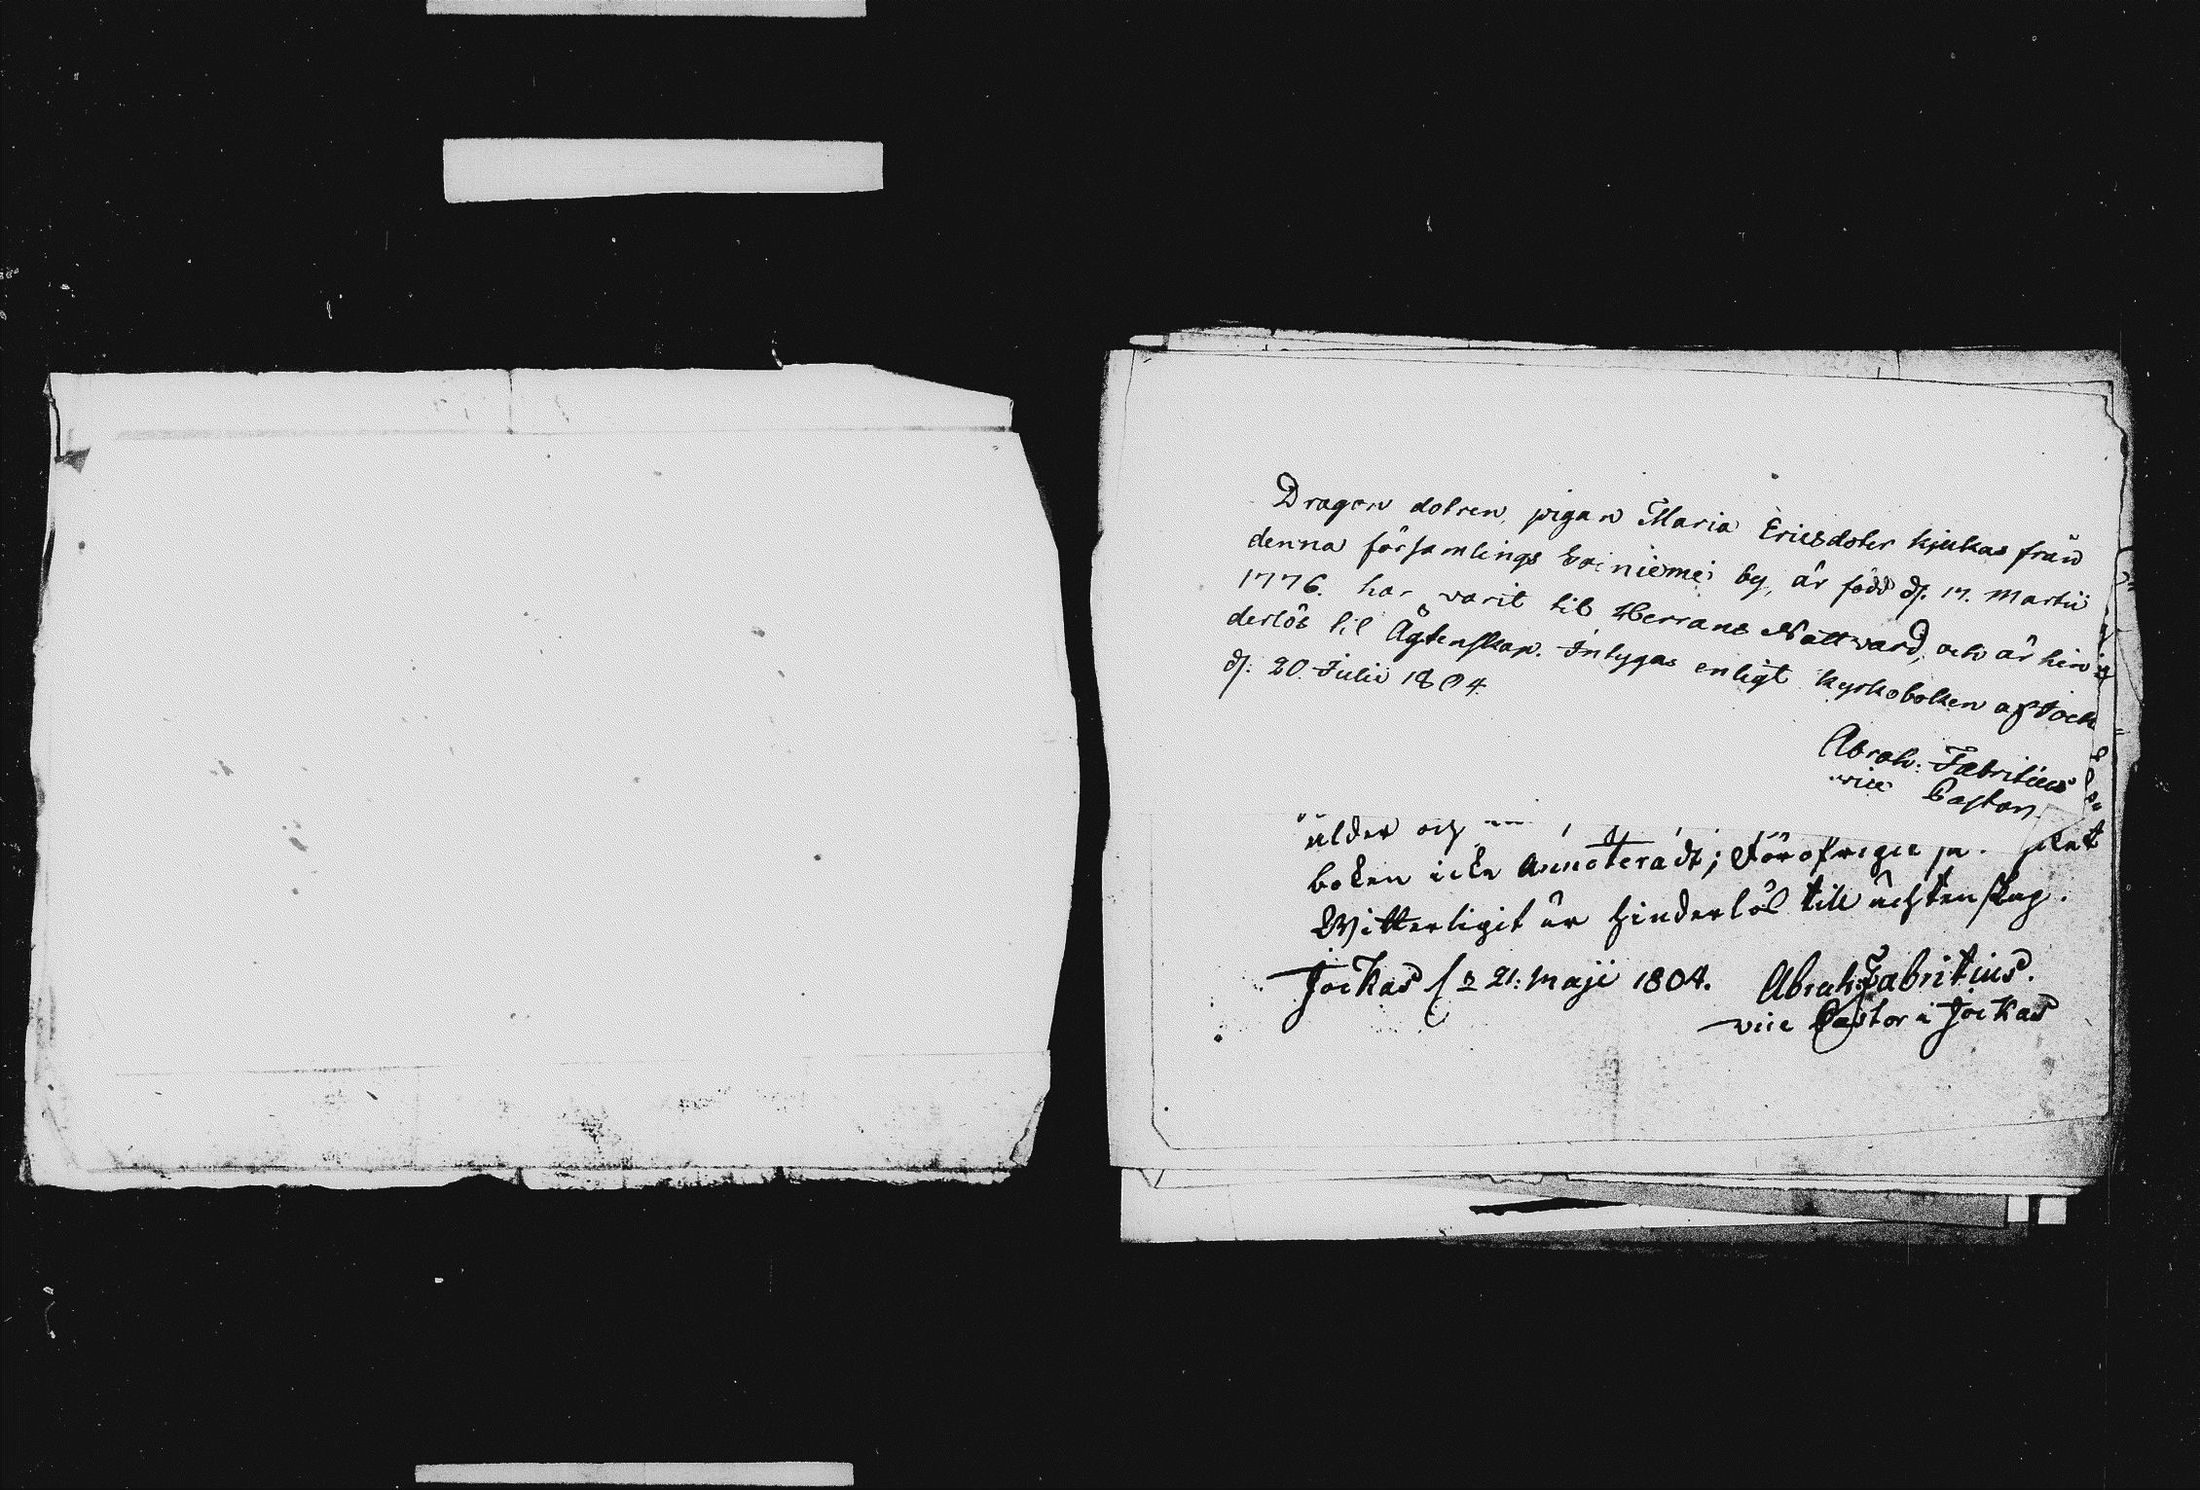 Dragon dotren, pigan Maria Ericsdoter kjukas från
denna församlings Woiniemei by, är född d. 17. Martii
1776. har varit til Herrans Nattvard, och är hin
derlös til Ägtenskap. Intygas enligt kyrkoboken af Jock
d. 20. Julii 1804.
Abrah. Fabritius
vice Pastor.
ålder och
boken icke Annoteradt; Föröfrigit
Witterligit är hinderlös till ächtenskap.
Jockas d 21: Maji 1804. Abrah. Fabritius.
vice Pastor i Jockas